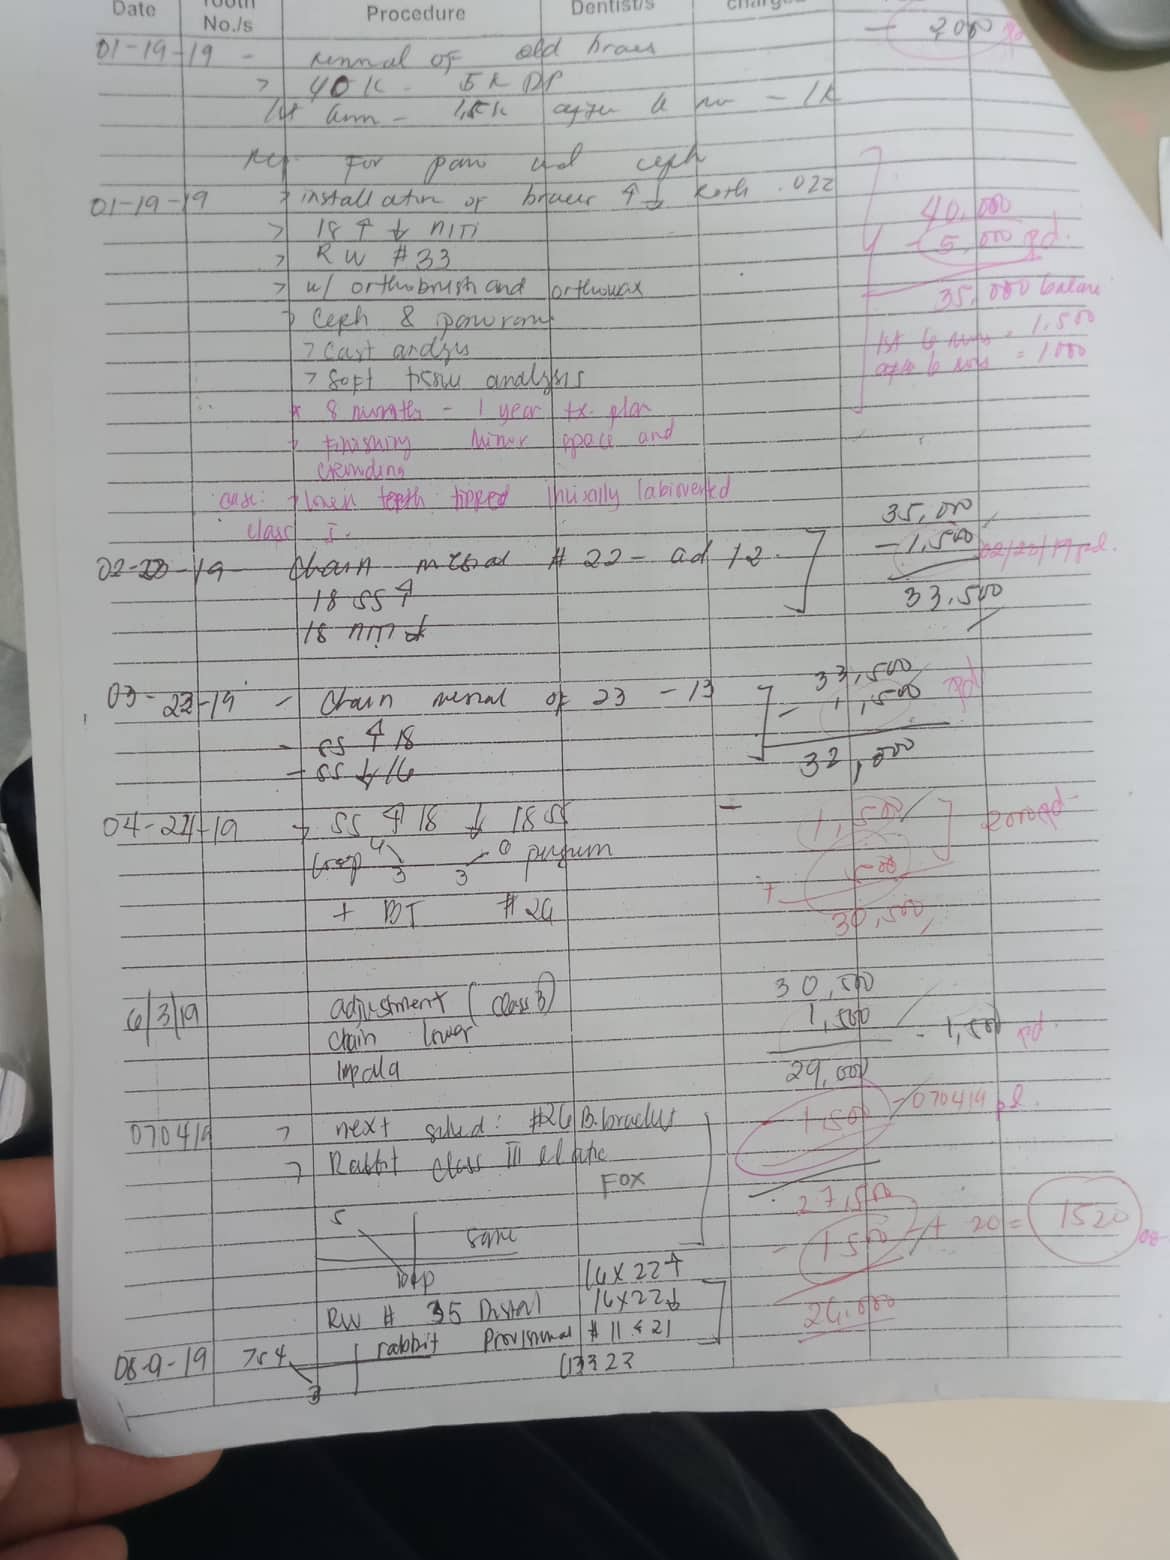 Date Tooth No./s Procedure Dentist/s charged
01-19-19 - removal of old braces - 2000 pd
> 40K - 5K DP
1st 6mn - 1.5K after 6 mo - 1K
Req. For pano and ceph
01-19-19 > installation of braces ↑ ↓ Roth .022
> 18 ↑ ↓ NITI
> RW #33
> w/ orthobrush and orthowax
> Ceph & panoram
> Cast analysis
> Soft tissue analysis
40,000
- 5,000 pd.
35,000 balance
1st 6 mos = 1,500
after 6 mos = 1000
* 8 months - 1 year tx. plan
> finishing minor space and
crowding
case: > lower teeth tipped labioverted
class I.
02-20-19 - Chain mesial # 22 - ad 12
18 SS ↑
18 niti ↓
35,000
- 1,500 02/20/19 pd.
33,500
03-22-19 - Chain mesial of 23 - 13
- SS ↑ 18
- SS ↓ 16
33,500
- 1,500 pd
32,000
04-24-19 > SS ↑ 18 ↓ 18 SS
4 3 3
+ BT #26
- 1,500
+ 500
30,500
6/3/19 adjustment (class 3)
chain lower
Impala
30,500
1,500 - 1,500 pd.
29,000
070419 > next sched: #26 B. brackets
> Rabbit class III elastic
FOX
1,500 - 070419 pd.
27,500
5 same
- 1500 + 20 = 1520
16x22 ↑
RW # 35 Distal 16x22 ↓
26,000
08-9-19 754 3 rabbit Provisional # 11 & 21
13323